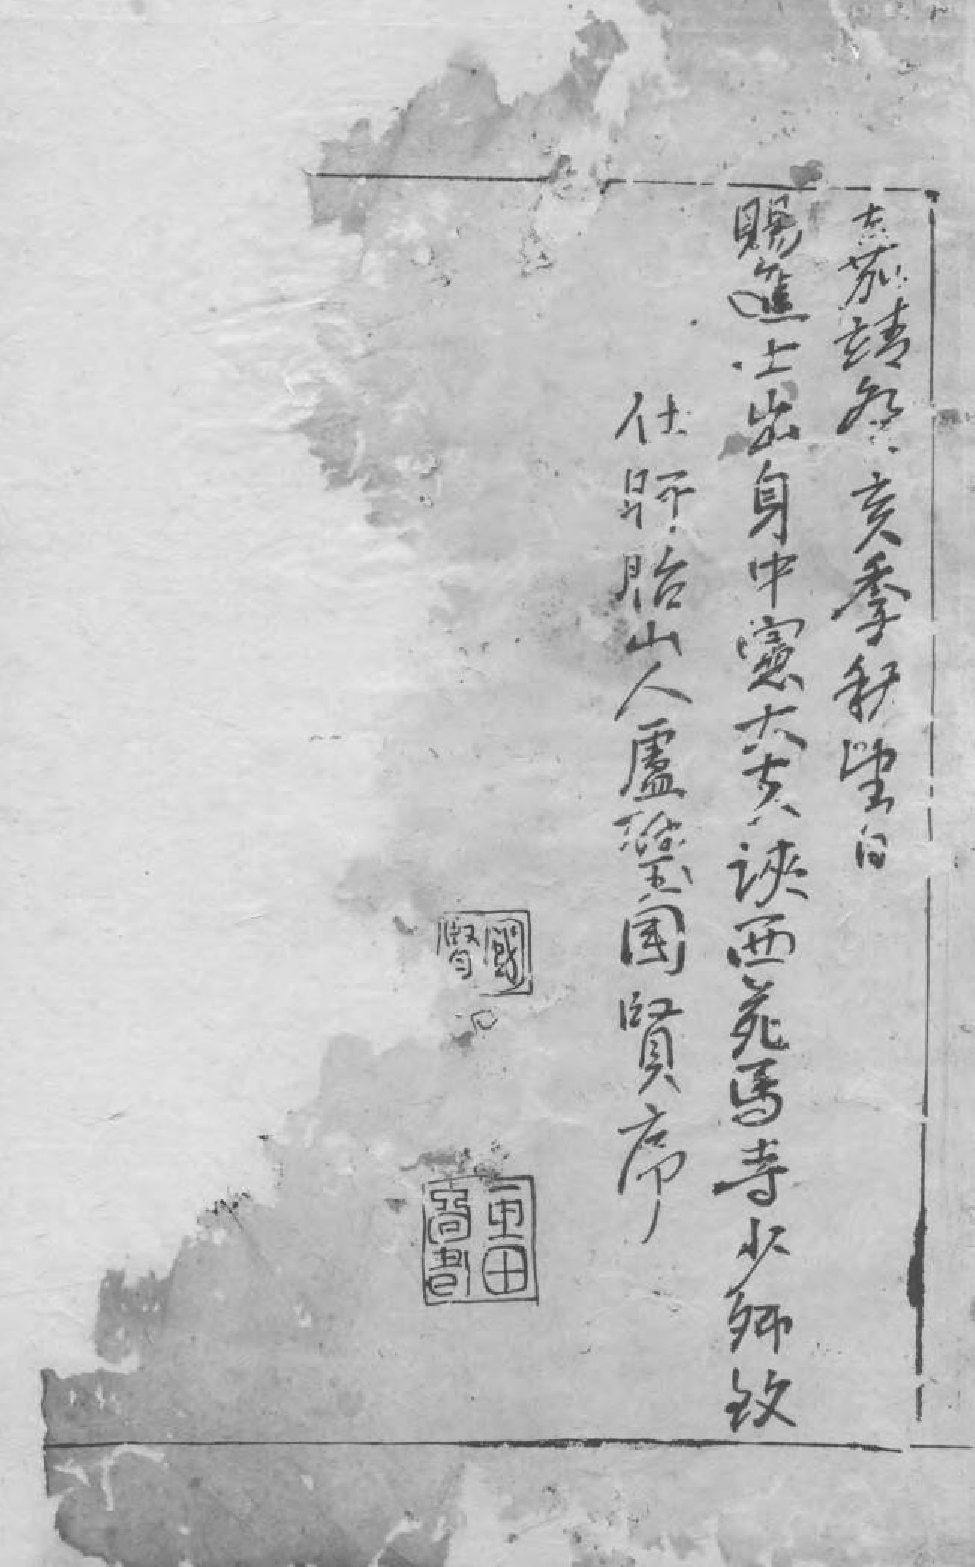 嘉靖癸亥季秋望日
賜進士出身中憲大夫陝西苑馬寺少卿致
仕盱眙山人盧璧国賢序
國賢